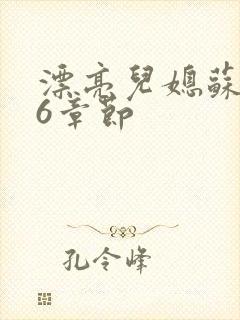 漂亮兒媳蘇
6章節
孔令峰